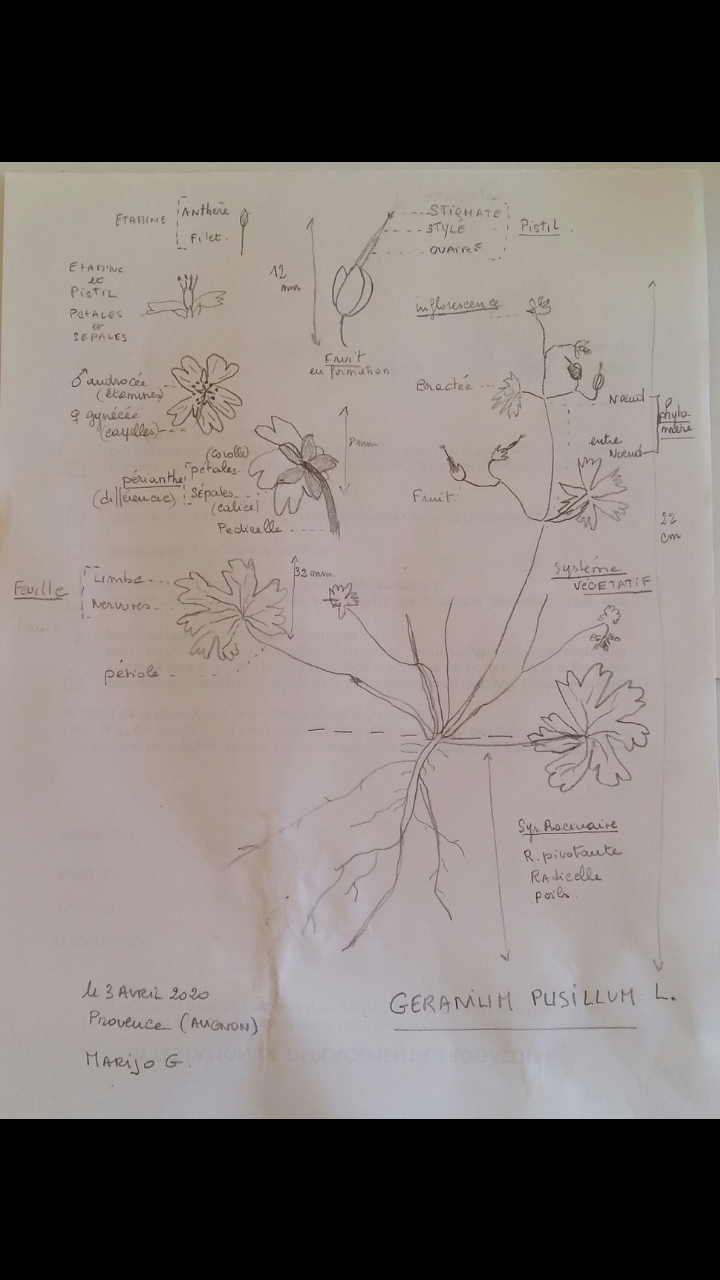 ETAMINE
Anthère
Filet.
STIGMATE
STYLE
OVAIRE
PISTIL
12
mm
ETAMINE
et
PISTIL
PETALES
et
SEPALES
Fruit
en formation
inflorescence
♂ androcée
(étamines)
♀ gynécée
(carpelles)
Bractée
Nœud
entre
Nœud
Phyto
mère
8 mm
(corolle)
pétales
périanthe
(différencié)
Sépales
(calice)
Pédicelle
Fruit
22
cm
Système
VÉGÉTATIF
Feuille
Limbe
Nervures
32 mm
pétiole
Sys. Racinaire
R. pivotante
Radicelle
poils.
le 3 AVRIL 2020
Provence (AVIGNON)
MARIJO G.
GERANIUM PUSILLUM L.